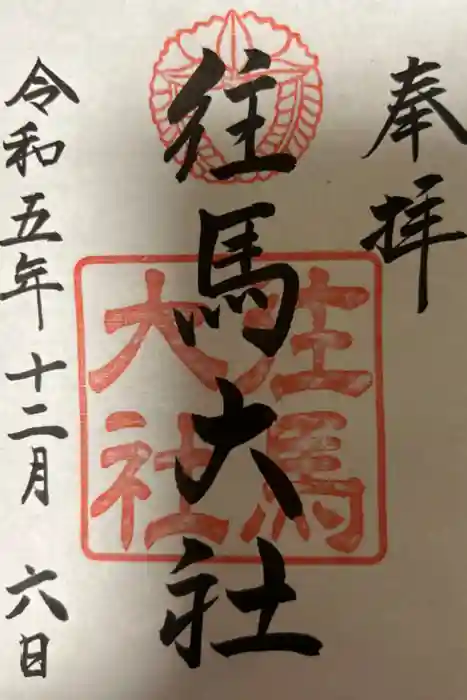 奉拝
往馬大社
往馬大社
令和五年十二月 六日